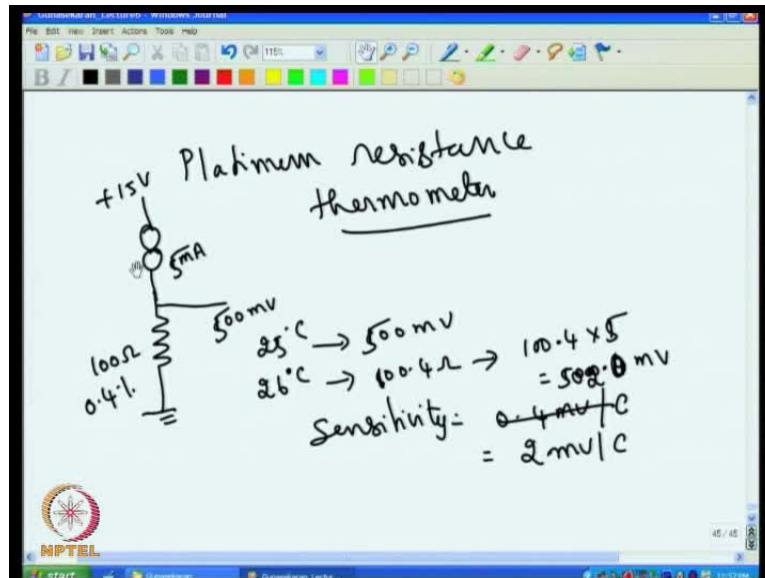 Gunasekaran_Lecture6 - Windows Journal
File Edit View Insert Actions Tools Help
115%
B I
Platinum resistance
thermometer
+15V
5mA
500mV
100Ω
0.4%
25°C → 500mV
26°C → 100.4Ω → 100.4 × 5
= 502.0 mV
Sensitivity = 0.4mV/C
= 2mV/C
45 / 45
NPTEL
start
Gunasekaran
Gunasekaran_Lectu...